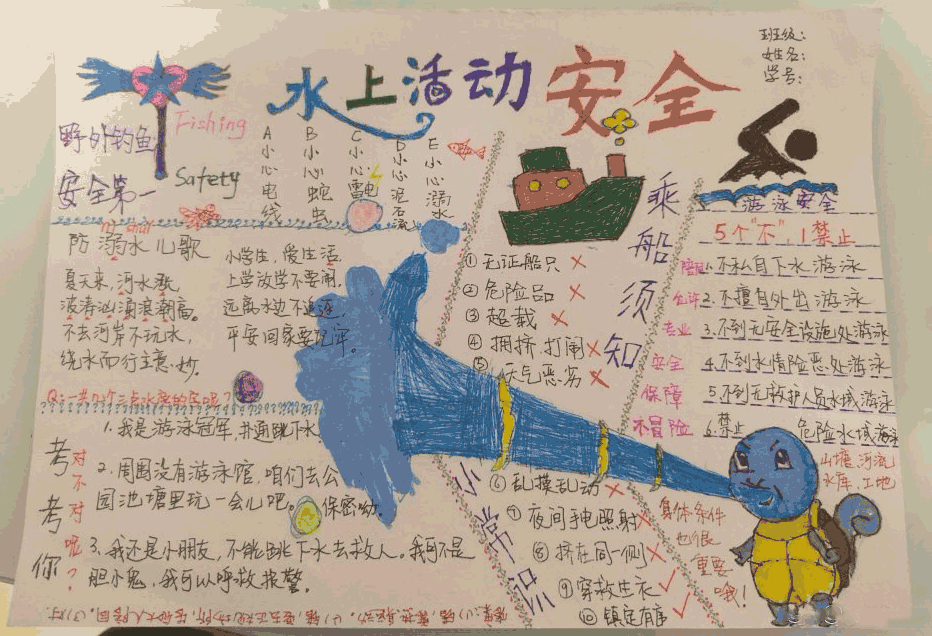 水上活动安全
班级:
姓名:
学号:
野外钓鱼
Fishing
安全第一
Safety
A小心电线
B小心蛇虫
C小心雷电
D小心泥石流
E小心溺水
防溺水儿歌
夏天来,河水涨,
波涛汹涌浪潮高。
不去河岸不玩水,
绕水而行主意妙。
小学生,爱生活,
上学放学不要闹。
远离水边不追逐,
平安回家要记牢。
考考你
对不对呢?
1.我是游泳冠军,
2.周围没有游泳馆,咱们去公
园池塘里玩一会儿吧。保密呦。
3.我还是小朋友,不能跳下水去救人。我可不是
胆小鬼,我可以呼救报警。
乘船须知
①无证船只 ×
②危险品 ×
③超载 ×
④拥挤.打闹×
天气恶劣 ×
⑥乱摸乱动 ×
⑦夜间手电照射×
⑧挤在同一侧×
⑨穿救生衣 ✓
⑩镇定有序 ✓
小常识
游泳安全
5个"不",1禁止
1.不私自下水游泳
允许2.不擅自外出游泳
专业3.不到无安全设施处游泳
安全4.不到水情险恶处游泳
保障5.不到无救护人员水域游泳
不冒险6.禁止 危险水域游泳
山塘.河流
水库.工地
身体条件
也很
重要
哦!